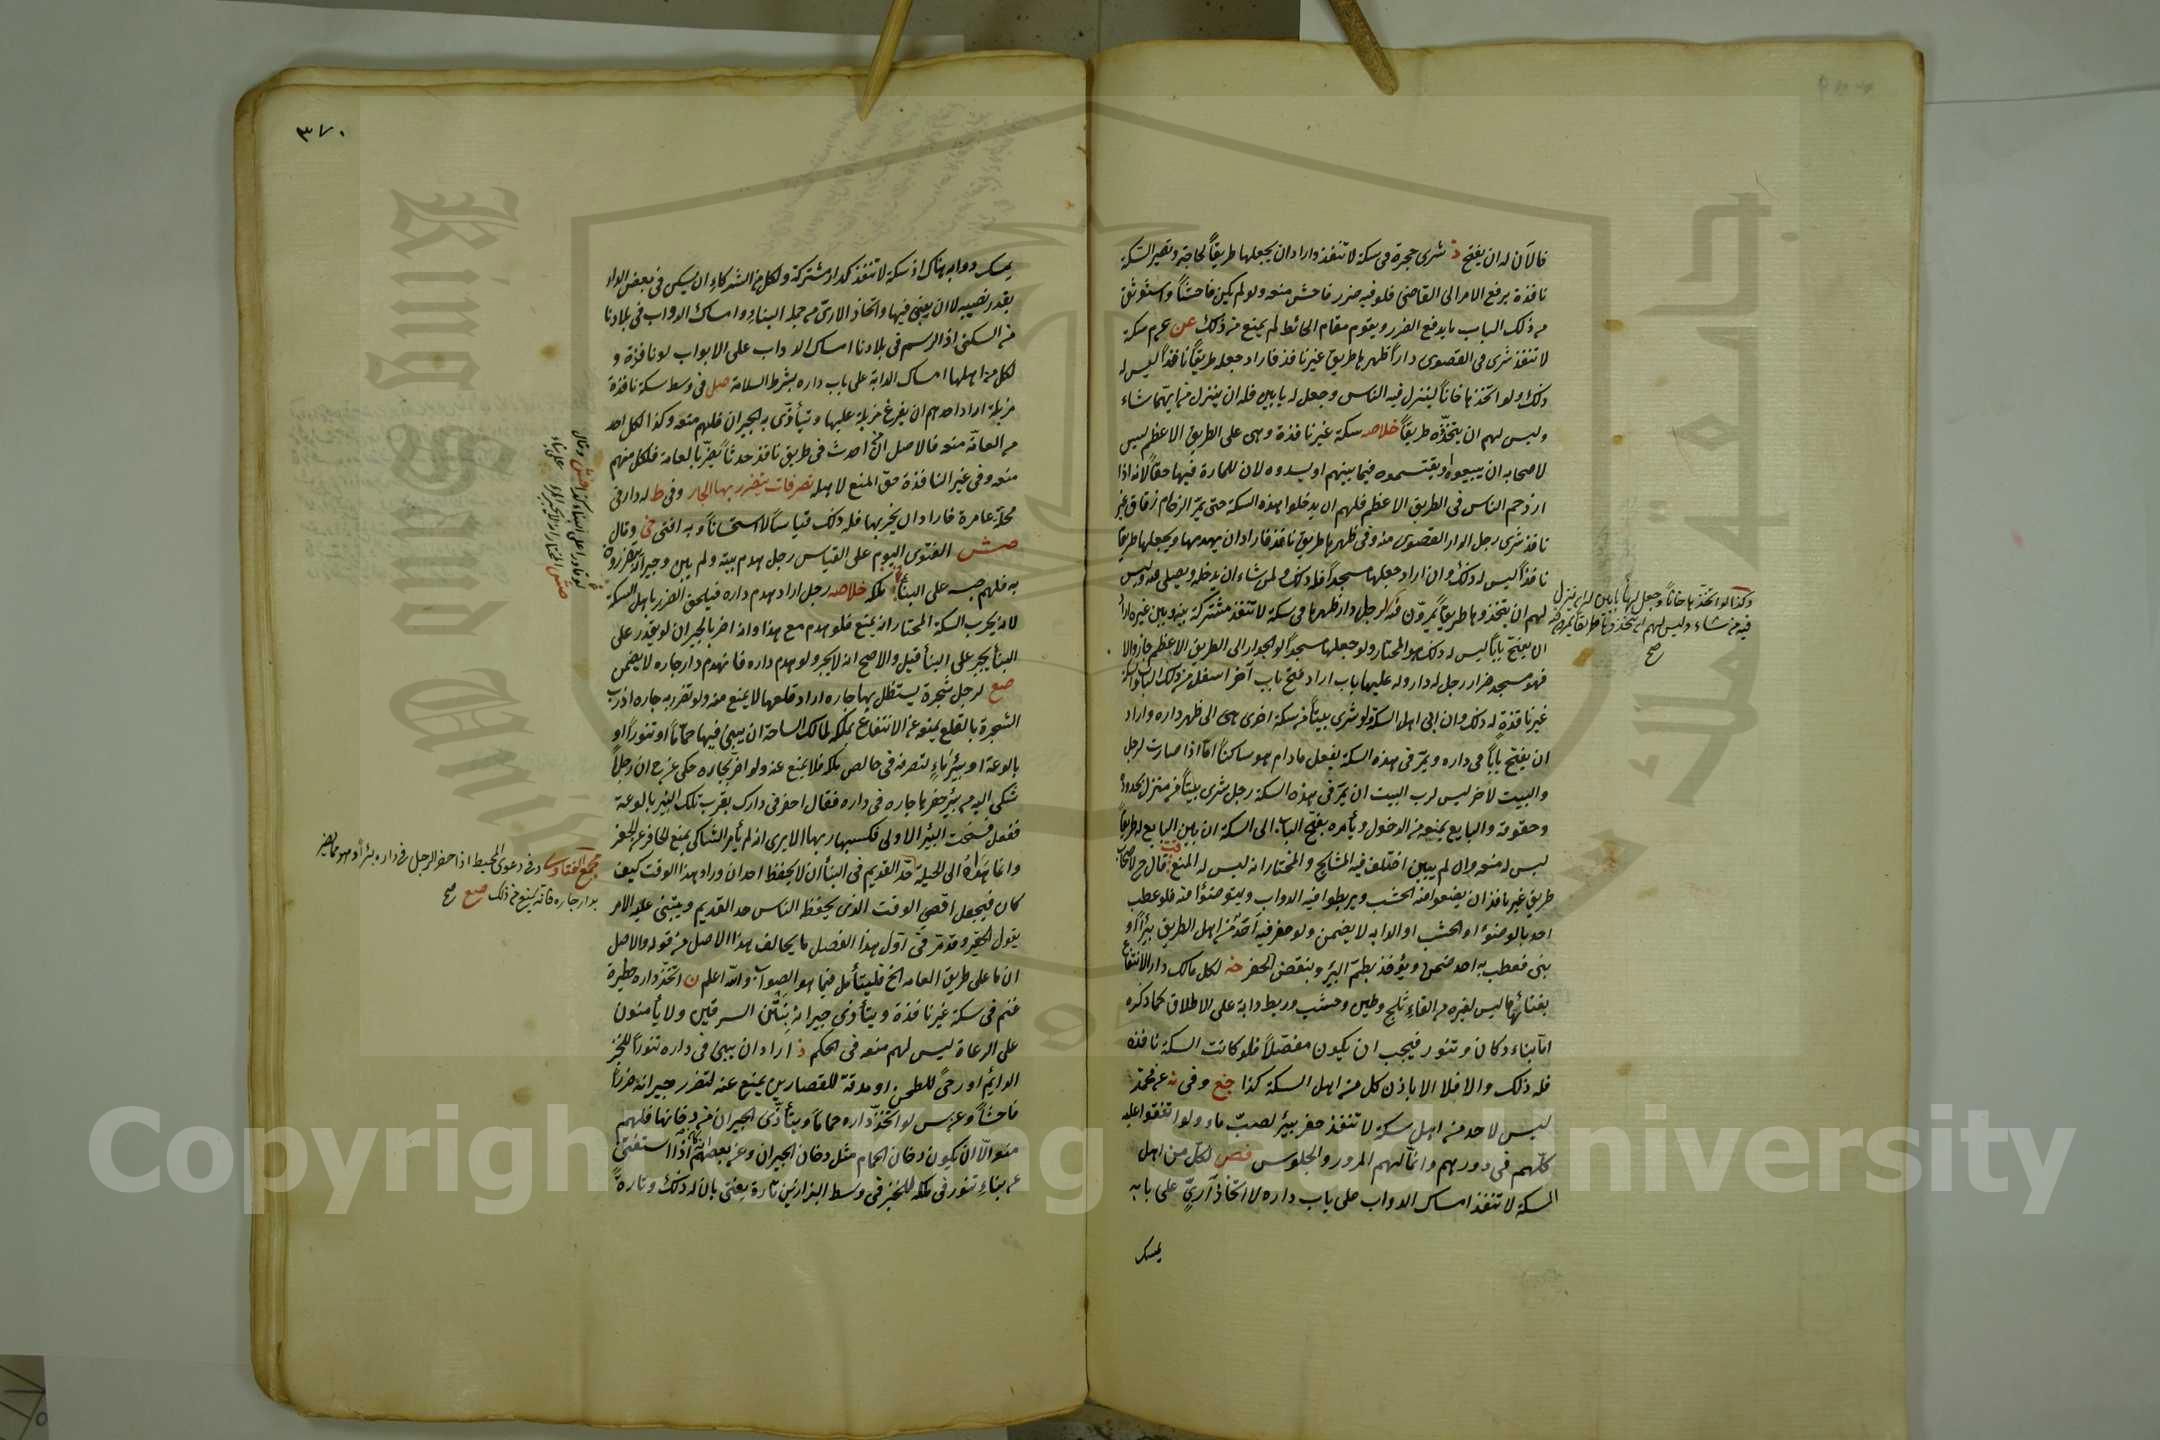 فالآن له ان يفتح ذ شرى حجرة فى سكة لا تنفذ واراد ان يجعلها طريقاً لحاجة وتصير السكة
نافذة يرفع الامر الى القاضى فلو فيه ضرر فاحش منعه ولو لم يكن فاحشاً واستوثق
من ذلك الباب ما يدفع الضرر ويقوم مقام الحائط لم يمنع من ذلك عن م سكة
لا تنفذ شرى فى القصوى داراً ظهرها طريق غير نافذ فاراد جعله طريقاً نافذاً ليس له
ذلك ولو اتخذها خاناً لينزل فيه الناس وجعل له بابين فله ان ينزل من ايهما شاء
وليس لهم ان يتخذوه طريقاً خلاصه سكة غير نافذة وهى على الطريق الاعظم ليس
لاصحابه ان يبيعوه ويقتسموه فيما بينهم او يسدوه لان للمارة فيها حقاً لانه اذا
ازدحم الناس فى الطريق الاعظم فلهم ان يدخلوا هذه السكة حتى يمر الزحام زقاق غير
نافذ شرى رجل الدار القصوى منه وفى ظهرها طريق نافذ فاراد ان يهدمها ويجعلها طريقاً
نافذاً ليس له ذلك وان اراد جعلها مسجداً فله ذلك ولمن شاء ان يدخله ويصلى فيه وليس
لهم ان يتخذوها طريقاً يمرون فيه لرجل دار ظهرها فى سكة لا تنفذ مشتركة بينه وبين غيره اراد
ان يفتح باباً ليس له ذلك هو المختار ولو جعلها مسجداً لو الجوار الى الطريق الاعظم جاز والا
فهو مسجد ضرار رجل له دار وله عليها باب اراد فتح باب آخر اسفل من ذلك الباب والسكة
غير نافذة له ذلك وان ابى اهل السكة ولو شرى بيتاً من سكة اخرى هى الى ظهر داره واراد
ان يفتح باباً فى داره ويمر فى هذه السكة يفعل مادام هو ساكناً اما اذا صارت لرجل
والبيت لآخر ليس لرب البيت ان يمر فى هذه السكة رجل شرى بيتاً من منزل بحدوده
وحقوقه والبايع يمنعه من الدخول ويأمره بفتح الباب الى السكة ان بين البايع له طريقاً
ليس له منعه وان لم يبين اختلف فيه المشايخ والمختار انه ليس له المنع قال م لاصحاب
طريق غير نافذ ان يضعوا فيه الخشب ويربطوا فيه الدواب ويتوضئوا فيه فلو عطب
احد بالوضوء او الخشب او الدابه لا يضمن ولو حفر فيه احد من اهل الطريق بئراً او
بنى فعطب به احد ضمن ويؤخذ بطم البئر وينقض الحفر خه لكل مالك دار الانتفاع
بفنائها ما ليس لغيره من القاء ثلج وطين وخشب وربط دابة على الاطلاق كما ذكره
اما بناء دكان وتنور فيجب ان يكون مفصلاً فلو كانت السكة نافذه
فله ذلك والا فلا الا باذن كل من اهل السكة كذا جغ وفى نه عن محمد
ليس لاحد من اهل سكة لا تنفذ حفر بئر لصب ماء ولو اتفقوا عليه
كلهم فى دورهم وانما لهم المرور والجلوس فص لكل من اهل
السكة لا تنفذ امساك الدواب على باب داره لا اتخاذ آرىّ على بابه
يمسك
وكذا لو اتخذها خاناً وجعل لها بابين له ان ينزل
فيه من شاء وليس لهم ان يتخذوها طريقاً يمرون فيه
صح
٣٧٠
يمسك دوابه هناك اذ سكة لا تنفذ كدار مشتركة ولكل من الشركاء ان يسكن فى بعض الدار
بقدر نصيبه لا ان يبنى فيها واتخاذ الآرىّ من جملة البناء وامساك الدواب فى بلادنا
من السكنى اذ الرسم فى بلادنا امساك الدواب على الابواب لو نافذة و
لكل من اهلها امساك الدابة على باب داره بشرط السلامة صل فى وسط سكة نافذة
مزبلة اراد احدهم ان يفرغ مزبلة عليها ويتأذى به الجيران فلهم منعه وكذا لكل احد
من العامة منعه فالاصل ان من احدث فى طريق نافذ حدثاً يضر بالعامة فلكل منهم
منعه وفى غير النافذة حق المنع لاهله تصرفات يتضرر بها الجار وفى ط له دار فى
محلة عامرة فاراد ان يخربها فله ذلك قياساً لا استحساناً وبه افتى خى وقال
حش الفتوى اليوم على القياس رجل هدم بيته ولم يبن وجيرانه يتضررون
به فلهم جبره على البناء ملكه خلاصه رجل اراد هدم داره فيلحق الضرر باهل السكة
لانه يخرب السكة المختار انه يمنع فلو هدم مع هذا وانه اضر بالجيران لو يقدر على
البناء يجبر على البناء قيل والاصح انه لا يجبر ولو هدم داره فانهدم دار جاره لا يضمن
صع لرجل شجرة يستظل بها جاره اراد قلعها لا يمنع منه ولو تضرر به جاره اذ رب
الشجرة بالقلع يمنعه عن الانتفاع بملكه لمالك الساحة ان يبنى فيها حماماً او تنوراً او
بالوعة او بئر ماء لتصرفه فى خالص ملكه فلا يمنع عنه ولو اضر بجاره حكى عن ح ان رجلاً
شكى اليه من بئر حفرها جاره فى داره فقال احفر فى دارك بقرب تلك البئر بالوعة
ففعل فنجست البئر الاولى فكسبها ربها الا يرى انه لم يأمر الشاكى بمنع الحافر عن الحفر
وانما هداه الى الحيلة حد القديم فى البناء ان لا يحفظ احدان وراء هذا الوقت كيف
كان فيجعل اقصى الوقت الذى يحفظ الناس حد القديم ويبتنى عليه الامر
يقول الحقير وقد مر فى اول هذا الفصل ما يخالف هذا الاصل من قوله والاصل
ان ما على طريق العامه الخ فليتأمل فيما هو الصواب والله اعلم ن اتخذ داره حظيرة
غنم فى سكة غير نافذة ويتأذى جيرانه بنتن السرقين ولا يأمنون
على الرعاة ليس لهم منعه فى الحكم ذ اراد ان يبنى فى داره تنوراً للخبز
الدائم او رحىً للطحن او مدقة للقصارين يمنع عنه لتضرر جيرانه ضرراً
فاحشاً وعن س لو اتخذ داره حماماً ويتأذى الجيران من دخانها فلهم
منعه الا ان يكون دخان الحمام مثل دخان الجيران وعن بعضهم انه اذا استفتى
عن بناء تنور فى ملكه للخبز فى وسط البزازين تارة يفتى بان له ذلك وتارة
مجمع الفتاوى وفى دعوى المحيط اذا حفر الرجل فى داره بئراً وهو مما يضر
بدار جاره فانه يمنع من ذلك صع صح
King Saud University
Copyright © King Saud University